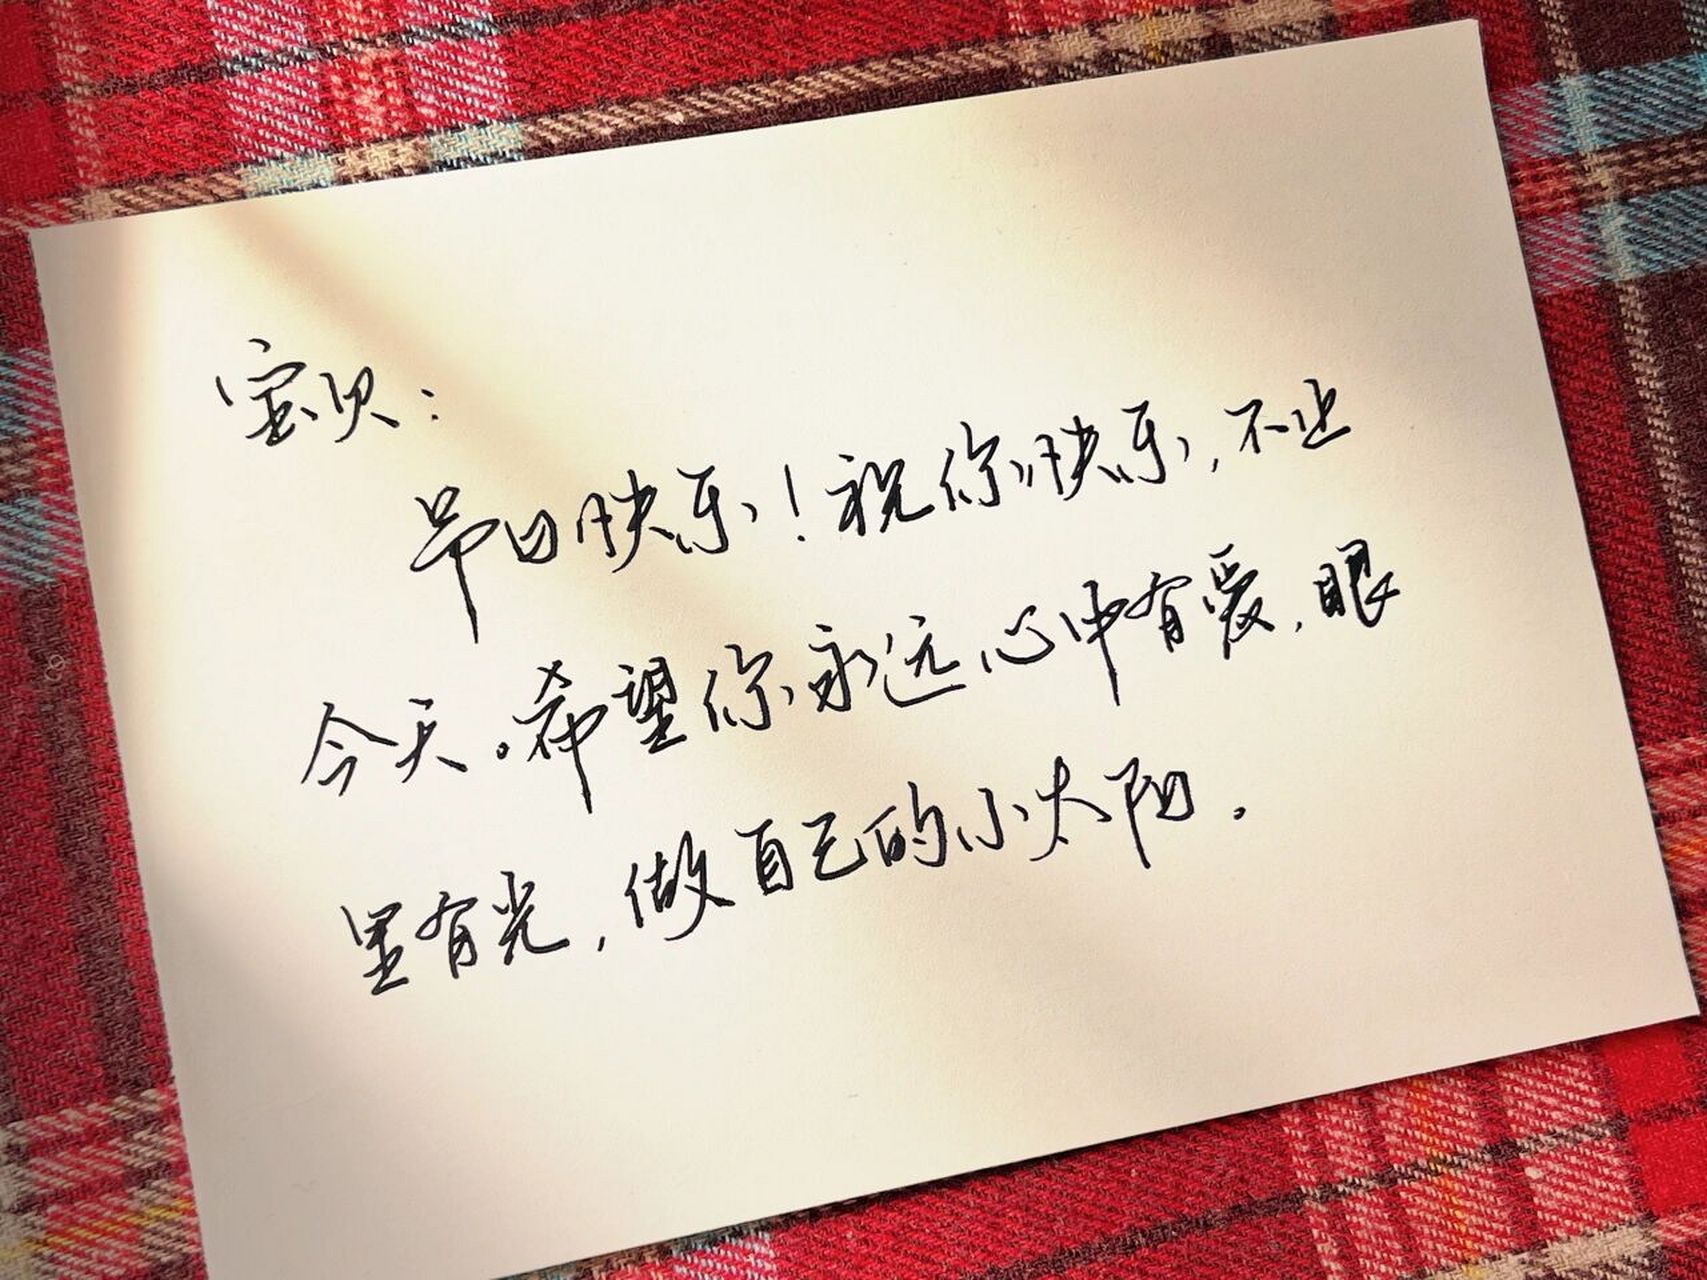 宝贝：
节日快乐！祝你快乐，不止
今天。希望你永远心中有爱，眼
里有光，做自己的小太阳。